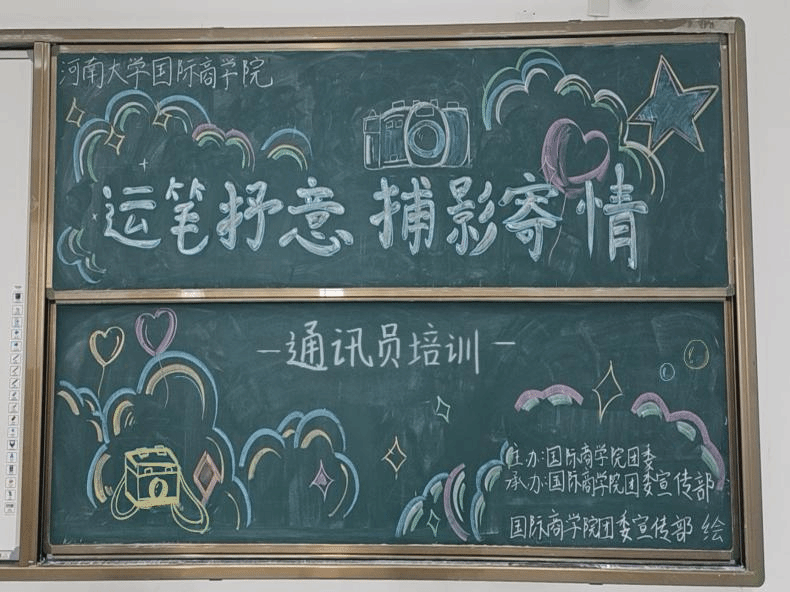 河南大学国际商学院
运笔抒意 捕影寄情
—通讯员培训—
主办:国际商学院团委
承办:国际商学院团委宣传部
国际商学院团委宣传部 绘